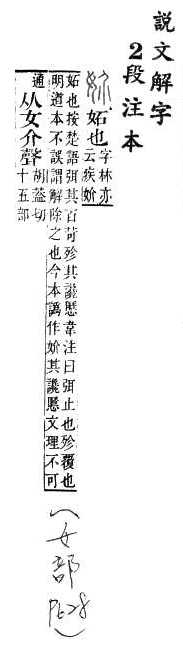 說文解字
2段注本
妎 妬也字林亦
云疾妎
妬也按楚語弭其百苛殄其讒慝韋注曰弭止也殄覆也
明道本不誤謂解除之也今本譌作妎其讒慝文理不可
通从女介聲胡蓋切
十五部
(女部
P628)